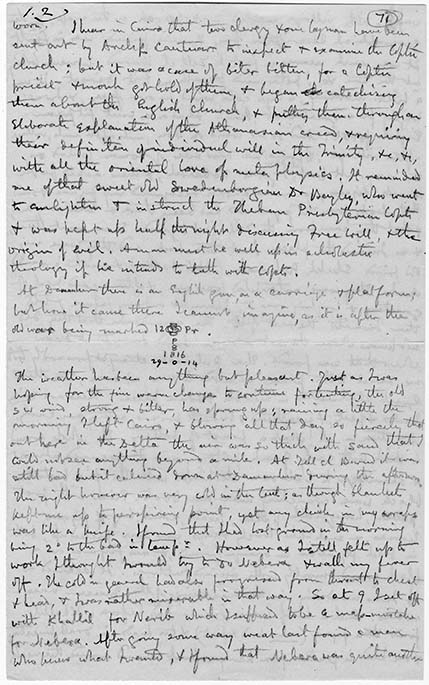 1.2) 71
worn. I hear in Cairo that two clergy & one layman have been
sent out by Archbp Cantuar to inspect & examine the Coptic
church; but it was a case of biter bitten, for a Coptic
priest & monk got hold of them, & began catechising
them about the English Church, & putting them through an
elaborate explanation of the Athanasian creed & requiring
their definition of individual will in the Trinity, &c, &c,
with all the oriental love of metaphysics. It reminded
me of that sweet old Swedenborgian Dr Bayley, who went
to enlighten & instruct the Theban Presbyterian Copts
& was kept up half the night discussing Free will, & the
origin of evil. A man must be well up in scholastic
theology if he intends to talk with Copts.
At Damanhur there is an English gun on a carriage & platform;
but how it came there I cannot imagine, as it is after the
old war being marked 12 Pr.
P
S
1816
29-0-14
The weather has been anything but pleasant. Just as I was
hoping for the fine warm changes to continue for tenting, the old
SW wind, strong & bitter, has sprung up; raining a little the
morning I left Cairo, & blowing all that day so fiercely that
out here in the Delta the air was so thick with sand that I
could not see anything beyond a mile. At Tell el Barud it was
still bad but it calmed down at Damanhur during the afternoon.
The night however was very cold in the tent; as though blankets
kept me up to perspiring point, yet any chink in my wraps
was like a knife. I found that I had lost ground in the morning
being 2° to the bad in temp.re. However as I still felt up to
work I thought I would try to do Nebera & walk my fever
off. The cold in general had also progressed from throat to chest
& head, & I was rather miserable in that way. So at 9 I set off
with Khallil for Nerib which I supposed to be a map-mistake
for Nebera. After going some way we at last found a man
who knew what I wanted, & I found that Nebera was quite another